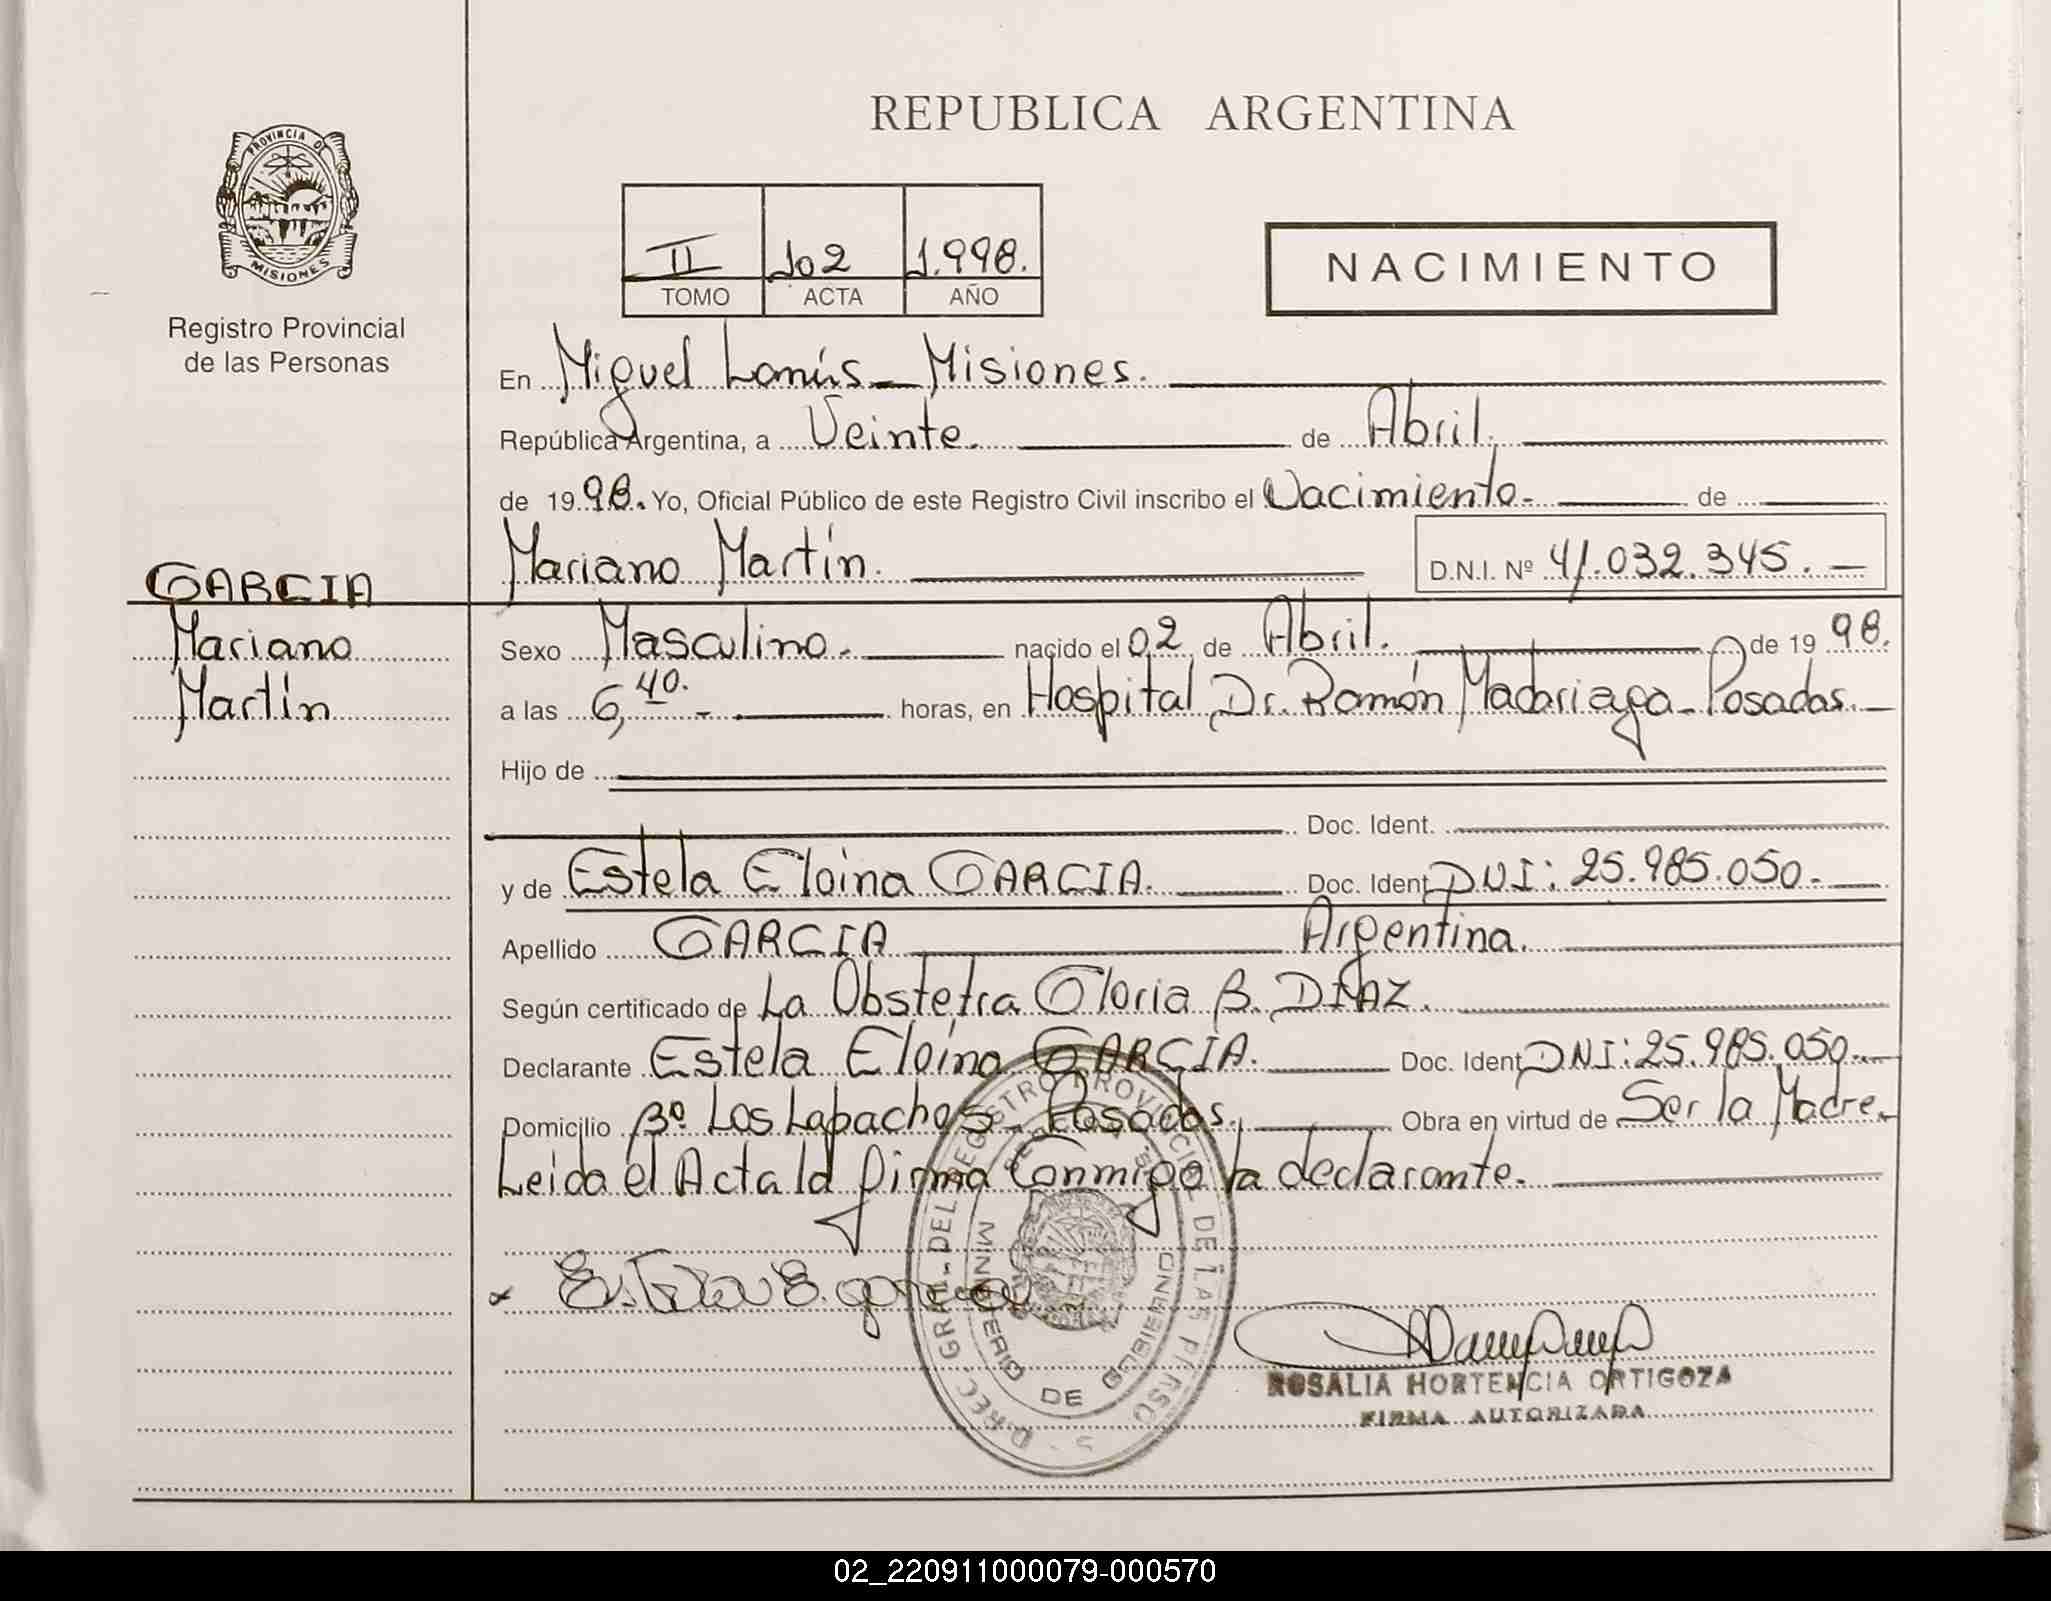 REPUBLICA ARGENTINA
PROVINCIA D
MISIONES
Registro Provincial
de las Personas
II 102 1.998.
TOMO ACTA AÑO
NACIMIENTO
En Miguel Lanús - Misiones.
República Argentina, a Veinte. de Abril.
de 1998. Yo, Oficial Público de este Registro Civil inscribo el Nacimiento. de
Mariano Martín. D.N.I. Nº 41.032.345.
GARCIA
Mariano
Martín
Sexo Masculino. nacido el 02 de Abril. de 1998.
a las 6,40. horas, en Hospital Dr. Ramón Madariaga - Posadas.
Hijo de
Doc. Ident.
y de Estela Eloina GARCIA. Doc. Ident DNI: 25.985.050.
Apellido GARCIA Argentina.
Según certificado de La Obstetra Gloria B. DIAZ.
Declarante Estela Eloína GARCIA. Doc. Ident DNI: 25.985.050.
Domicilio Bº Los Lapachos - Posadas. Obra en virtud de Ser la Madre.
Leida el Acta la firma Conmigo la declarante.
Estela E. garcia
D. REC. GRAL. DEL REGISTRO PROVINCIAL DE LAS PERSO S
MINISTERIO DE GOBIERNO
ROSALIA HORTENCIA ORTIGOZA
FIRMA AUTORIZADA
02_220911000079-000570